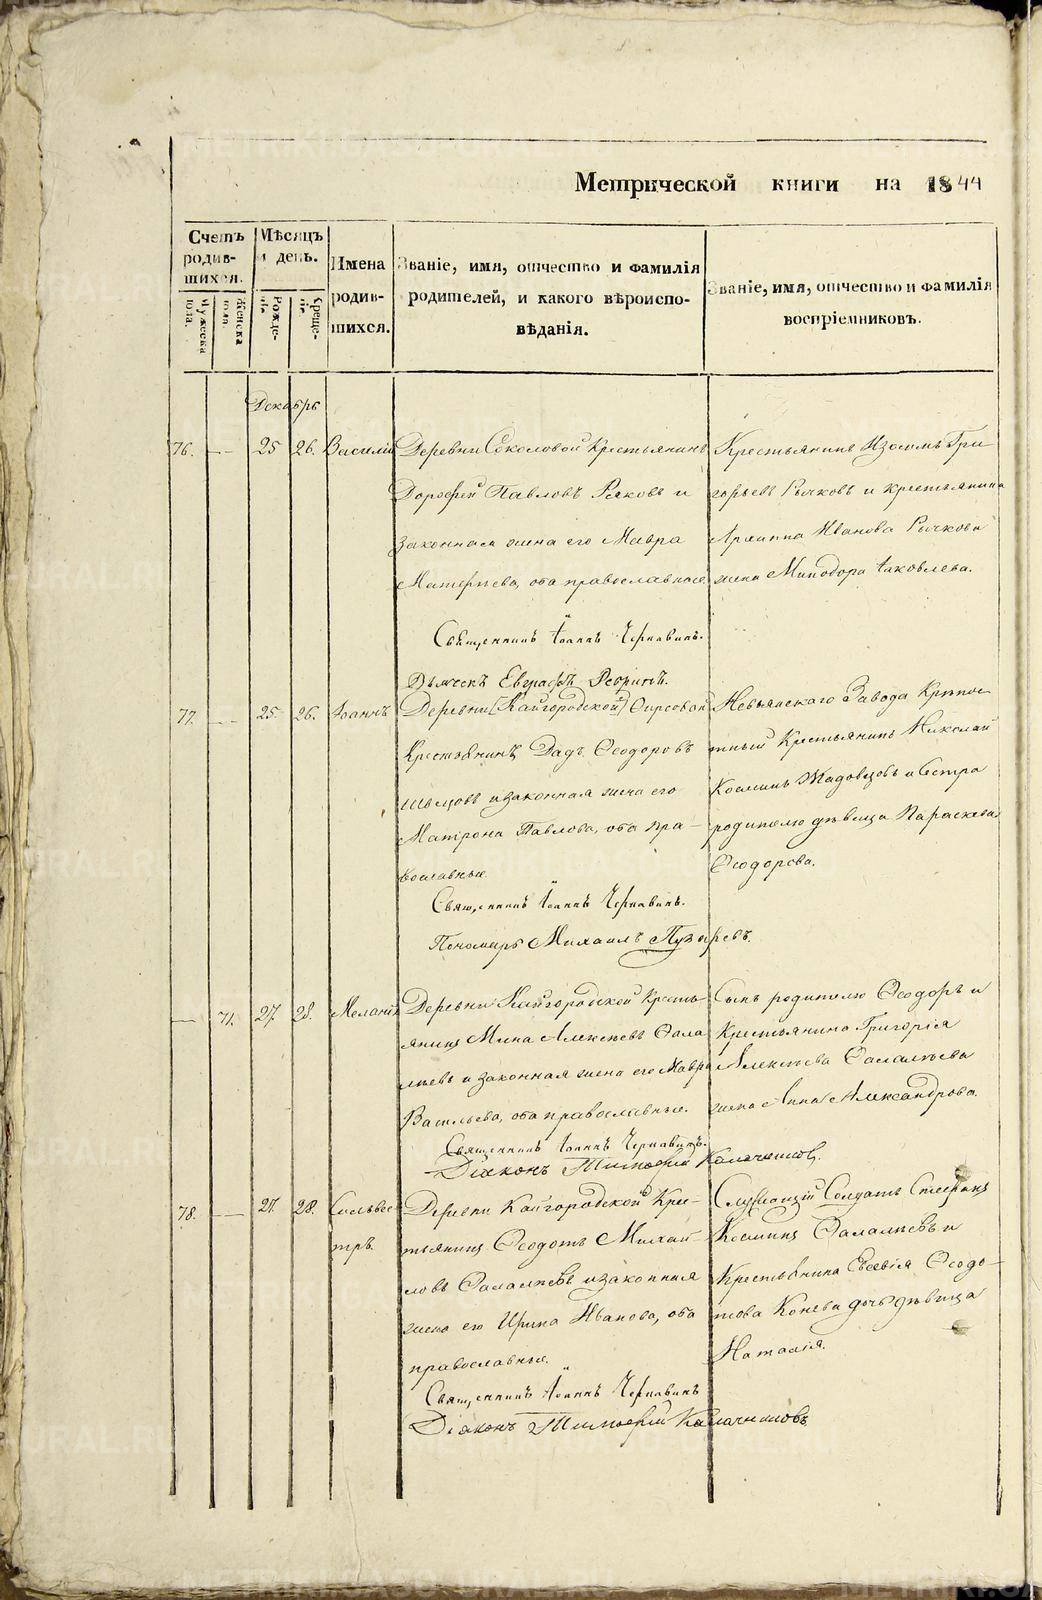 Метрической книги на 1844
Счетъ родив-шихся.
Мужеска пола.
Женска пола
Мѣсяцъ и день.
Рожде-нія.
Креще-нія.
Имена родив-шихся.
Званіе, имя, отчество и фамилія
родителей, и какого вѣроиспо-
вѣданія.
Званіе, имя, отчество и фамилія
воспріемниковъ.
Декабрь
76. — 25 26. Василій
Деревни Соколовой Крестьянинъ
Дорофей Павловъ и
законная жена его Мавра
оба православные
Священникъ Іоаннъ Чернавинъ.
Дьячекъ Евграфъ
Крестьянинъ Изосимъ Гри
горьевъ Рычковъ и крестьянина
Архиппа Иванова Рычкова
жена Минодора Іаковлева.
77. — 25. 26. Іоаннъ
Деревни (Кайгородской) Фирсовой
Крестьянинъ Ѳеодоровъ
и законная жена его
Матрона Павлова, оба пра-
вославные.
Священникъ Іоаннъ Чернавинъ.
Пономарь Михаилъ Пузыревъ.
Невьянскаго Завода Крѣпос
тный Крестьянинъ Николай
Косминъ и Сестра
родителю дѣвица Параскева
Ѳеодорова.
— 71. 27. 28. Меланія
Деревни Кайгородской Кресть
янинъ Мина Алексѣевъ Фала
лѣевъ и законная жена его Мавра
Васильева, оба православные.
Священникъ Іоаннъ Чернавинъ.
Діаконъ Тимофей Калачниковъ.
Сынъ родителю Ѳеодоръ и
Крестьянина Григорія
Алексѣева Фалалѣева
жена Анна Александрова.
78. — 27. 28. Сильвес
тръ.
Деревни Кайгородской Крес
тьянинъ Ѳеодотъ Михай
ловъ Фалалѣевъ и законная
жена его Ирина Иванова, оба
православные.
Священникъ Іоаннъ Чернавинъ
Діаконъ Тимофей Калачниковъ
Служащій Солдатъ
Косминъ Фалалѣевъ и
Крестьянина Евсевія Ѳеодо-
това Конева дочь дѣвица
Наталія.